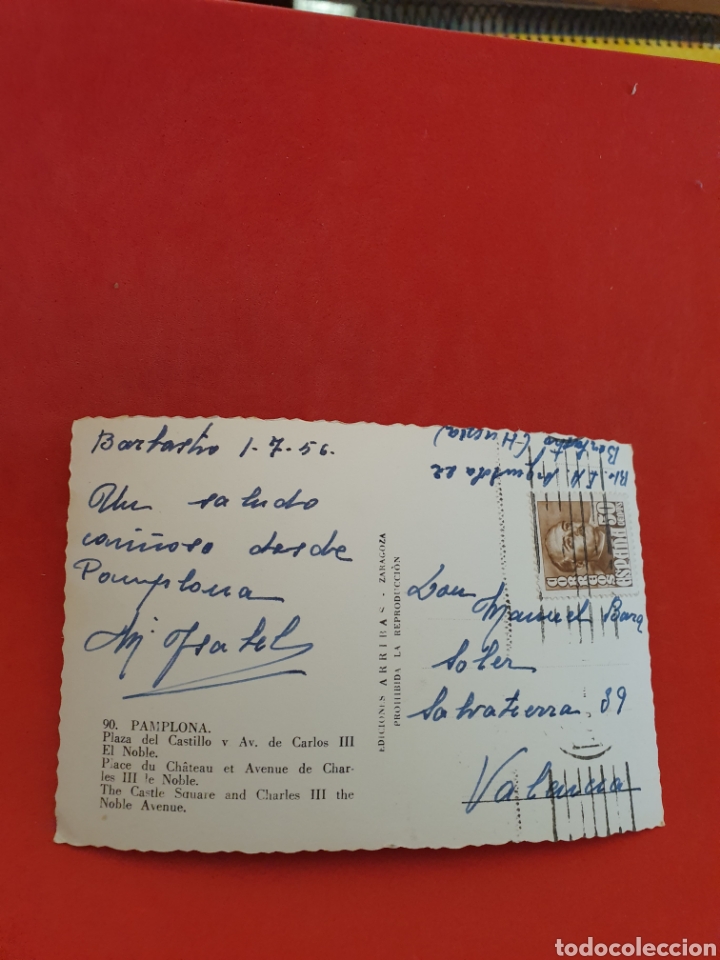 Barbastro 1-7-56.
Un saludo
cariñoso desde
Pamplona
Mª Isabel
90. PAMPLONA.
Plaza del Castillo y Av. de Carlos III
El Noble.
Place du Château et Avenue de Char-
les III le Noble.
The Castle Square and Charles III the
Noble Avenue.
EDICIONES ARRIBAS - ZARAGOZA
PROHIBIDA LA REPRODUCCIÓN
Argensola 22
Barbastro (Huesca)
CORREOS
50 CTS
ESPAÑA
Don Manuel Bara
Soler
Salvatierra 39
Valencia
todocoleccion